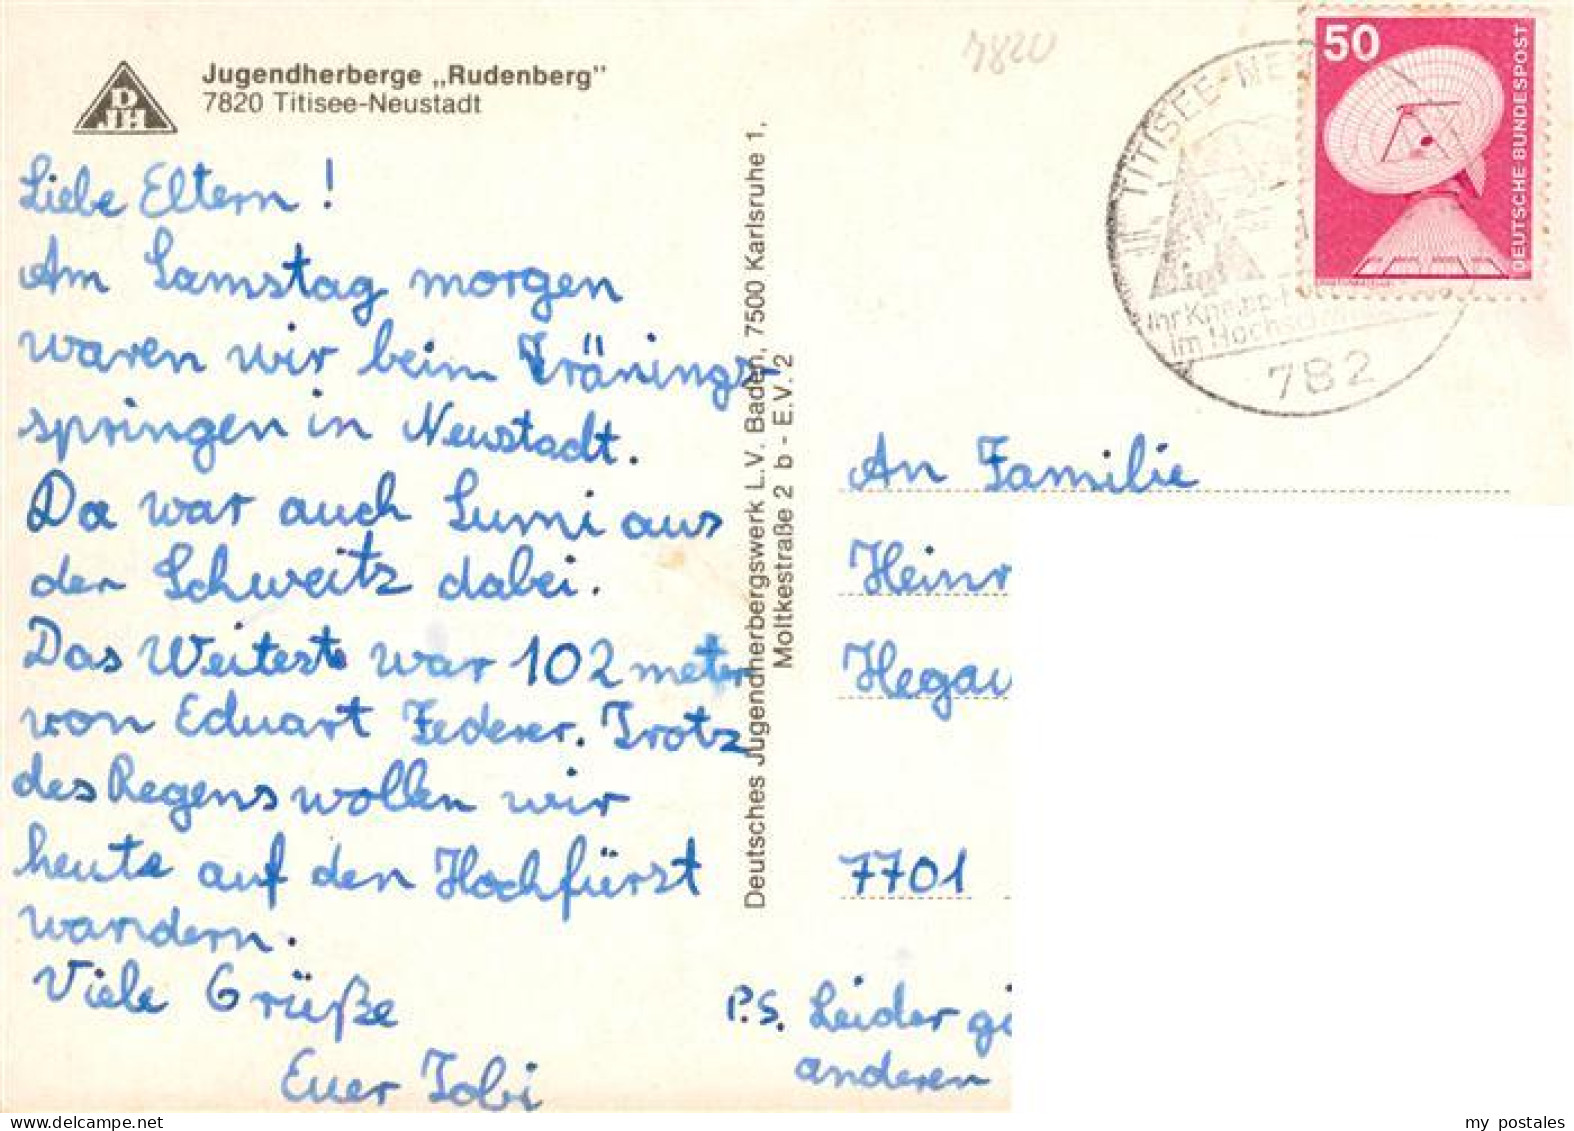 DJH
Jugendherberge „Rudenberg"
7820 Titisee-Neustadt
Liebe Eltern!
Am Samstag morgen
waren wir beim Tränings-
springen in Neustadt.
Da war auch Sumi aus
der Schweitz dabei.
Das Weiteste war 102 meter
von Eduart Federer. Trotz
des Regens wollen wir
heute auf den Hochfürst
wandern.
Viele Grüße
Euer Tobi
Deutsches Jugendherbergswerk L.V. Baden, 7500 Karlsruhe 1,
Moltkestraße 2 b - E.V. 2
7820
TITISEE-NE
Ihr Kneipp-
im Hochschw
782
50
DEUTSCHE BUNDESPOST
An Familie
Heinr
Hegau
7701
P.S. Leider
anderen
my postales